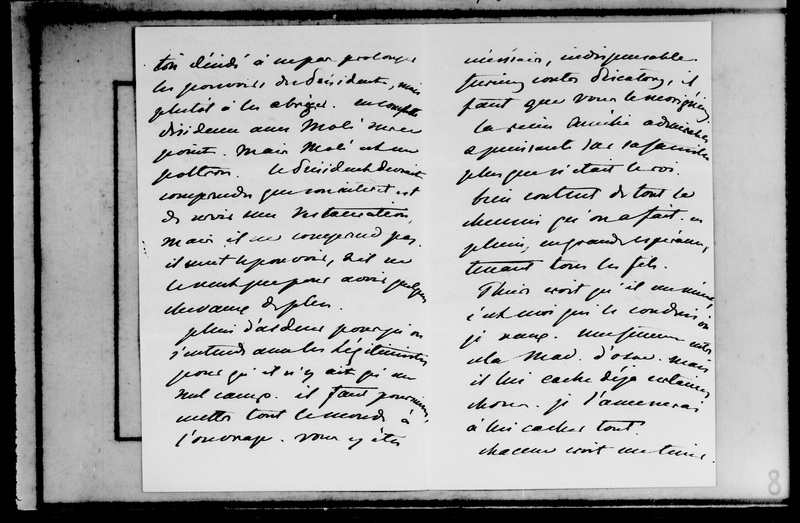 décidé à ne pas prolonger
les pouvoirs du Président, mais
plutôt à les abréger. en complète
dissidence avec Molé sur ce
point. mais Molé est un
poltron. le Président devrait
comprendre que son intérêt est
de servir une restauration,
mais il ne comprend pas.
il veut le pouvoir, et il ne
le veut que pour avoir quelques
chevaux de plus.
plein d'ardeur pour qu'on
s'entende avec les légitimistes
pour qu'il n'y ait qu'un
seul camp. il faut
mettre tout le monde à
l'ouvrage. vous y êtes
nécessaire, indispensable
contre Piscatory, il
faut que vous le
la reine Amélie admirable
a puissante sur sa famille
plus que n'était le roi.
bien content de tout le
chemin qu'on a fait, en
pleine, en grande espérance,
tenant tous les fils.
Thiers croit qu'il me mène,
c'est moi qui le conduis où
je veux. entre
et la Mad. d'osne. mais
il lui cache déjà certaines
choses. je l'amènerai
à lui cacher tout.
chacun croit me tenir.
8